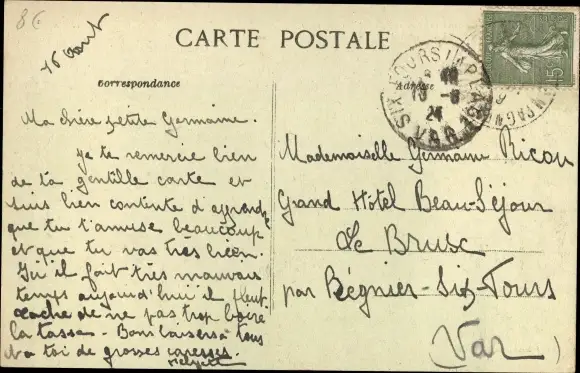 8€
16 Aout
CARTE POSTALE
Correspondance
Adresse
SIX-FOURS LA PLAGE
16 -8
24
VAR
15
Ma chère petite Germaine.
Je te remercie bien
de ta gentille carte et
suis bien contente d'apprendre
que tu t'amuse beaucoup
et que tu vas très bien.
Ici il fait très mauvais
temps aujourd'hui il pleut.
Tache de ne pas trop boire
la tasse - Bons baisers à tous
et a toi de grosses caresses.
Mademoiselle Germaine Ricou
Grand Hôtel Beau-Séjour
Le Brusc
par Régnier-Six-Fours
(Var)